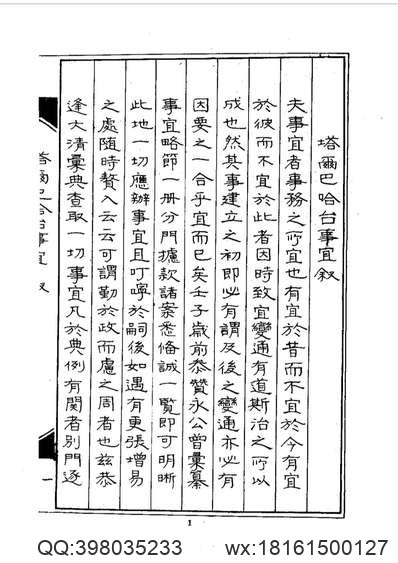 塔爾巴哈台事宜叙
夫事宜者事務之所宜也有宜於昔而不宜於今有宜
於彼而不宜於此者因時致宜變通有道斯治之所以
成也然其事建立之初即必有謂及後之變通亦必有
因要之一合乎宜而已矣壬子歲前恭贊永公曾彙纂
事宜略節一册分門據款諸案悉俻誠一覽即可明晰
此地一切應辦事宜且叮嚀於嗣後如遇有更張增易
之處隨時贅入云云可謂勤於政而慮之周者也兹恭
逢大清彙典查取一切事宜凡於典例有関者別門逐
塔爾巴哈台事宜 叙
一
1
QQ:398035233 wx:18161500127